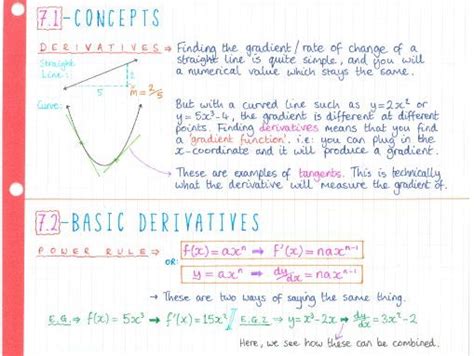 7.1 - CONCEPTS
DERIVATIVES ⇒ Finding the gradient / rate of change of a
straight line is quite simple, and you will
a numerical value which stays the same.
Straight
Line:
2
5
m = 2/5
Curve:
But with a curved line such as y=2x² or
y=5x³-4, the gradient is different at different
points. Finding derivatives means that you find
a 'gradient function'. i.e: you can plug in the
x-coordinate and it will produce a gradient.
These are examples of tangents. This is technically
what the derivative will measure the gradient of.
7.2 - BASIC DERIVATIVES
POWER RULE ⇒ f(x) = axⁿ ➡ f'(x) = naxⁿ⁻¹
OR:
y = axⁿ ➡ dy/dx = naxⁿ⁻¹
→ These are two ways of saying the same thing.
E.G. ⇒ f(x) = 5x³ → f'(x) = 15x² // E.G.2 ⇒ y = x³-2x → dy/dx = 3x²-2
Here, we see how these can be combined.